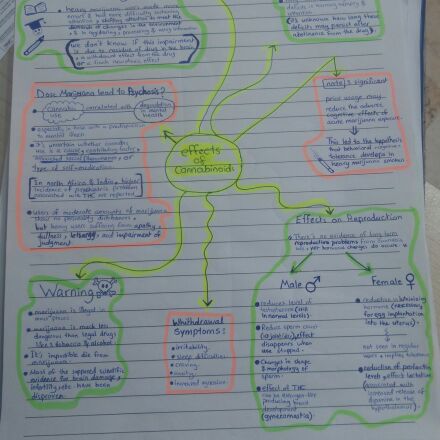 heavy marijuana users made more
errors & had more difficulty
attention, shifting attention to meet the
demands of changes in the environment
& in registering, processing & using
we don't know if this impairment
is due to residue of drug in the brain,
a withdrawal effect from the drug
or a
deficits in memory
is unknown how long these
deficits may persist after
abstinence from the drug.
Dose Marijuana lead to Psychosis?
Cannabis use
correlated with
degradation in mental health
especially in those with a
to mental illness
It's uncertain whether cannabis
use is a cause, contributing factor,
associated social phenomenon, or
type of self-medication.
In north Africa & India, higher
incidence of psychiatric problem
associated with THC are reported.
Users of moderate amounts of marijuana
show no personality disturbances,
but heavy users suffering from apathy,
dullness, lethargy, and impairment of
judgment
effects
of
Cannabinoids
(note)'s significant
prior usage may
reduce the adverse
cognitive effects of
acute marijuana exposure.
This led to the hypothesis
that behavioral cognitive
tolerance develops in
heavy marijuana smokers
Effects on Reproduction
There's no evidence of long term
reproduction problems from
use, yet hormonal changes do occur
Male ♂
reduces level of
testosterone (still
in normal levels).
Reduce sperm count
effect
disappears when
use stopped.
Changes in shape
& morphology of
sperm.
effect of THC
can be estrogen-like
producing breast
development
(gynecomastia).
Female ♀
reduction in luteinizing
hormone (necessary
for egg implantation
into the uterus).
not seen in regular
users → implies tolerance
reduction of
levels, effect lactation
(associated with
increased release of
dopamine in the
hypothalamus)
Warning
marijuana is illegal in
most
marijuana is much less
dangerous than legal drugs
like: tobacco & alcohol
It's impossible die from
marijuana.
Most of the supposed scientific
evidence for brain damage,
infertility, etc. have been
disproven
Whithdrawal
Symptoms:
irritability.
sleep difficulties.
craving.
anxiety.
increased agression